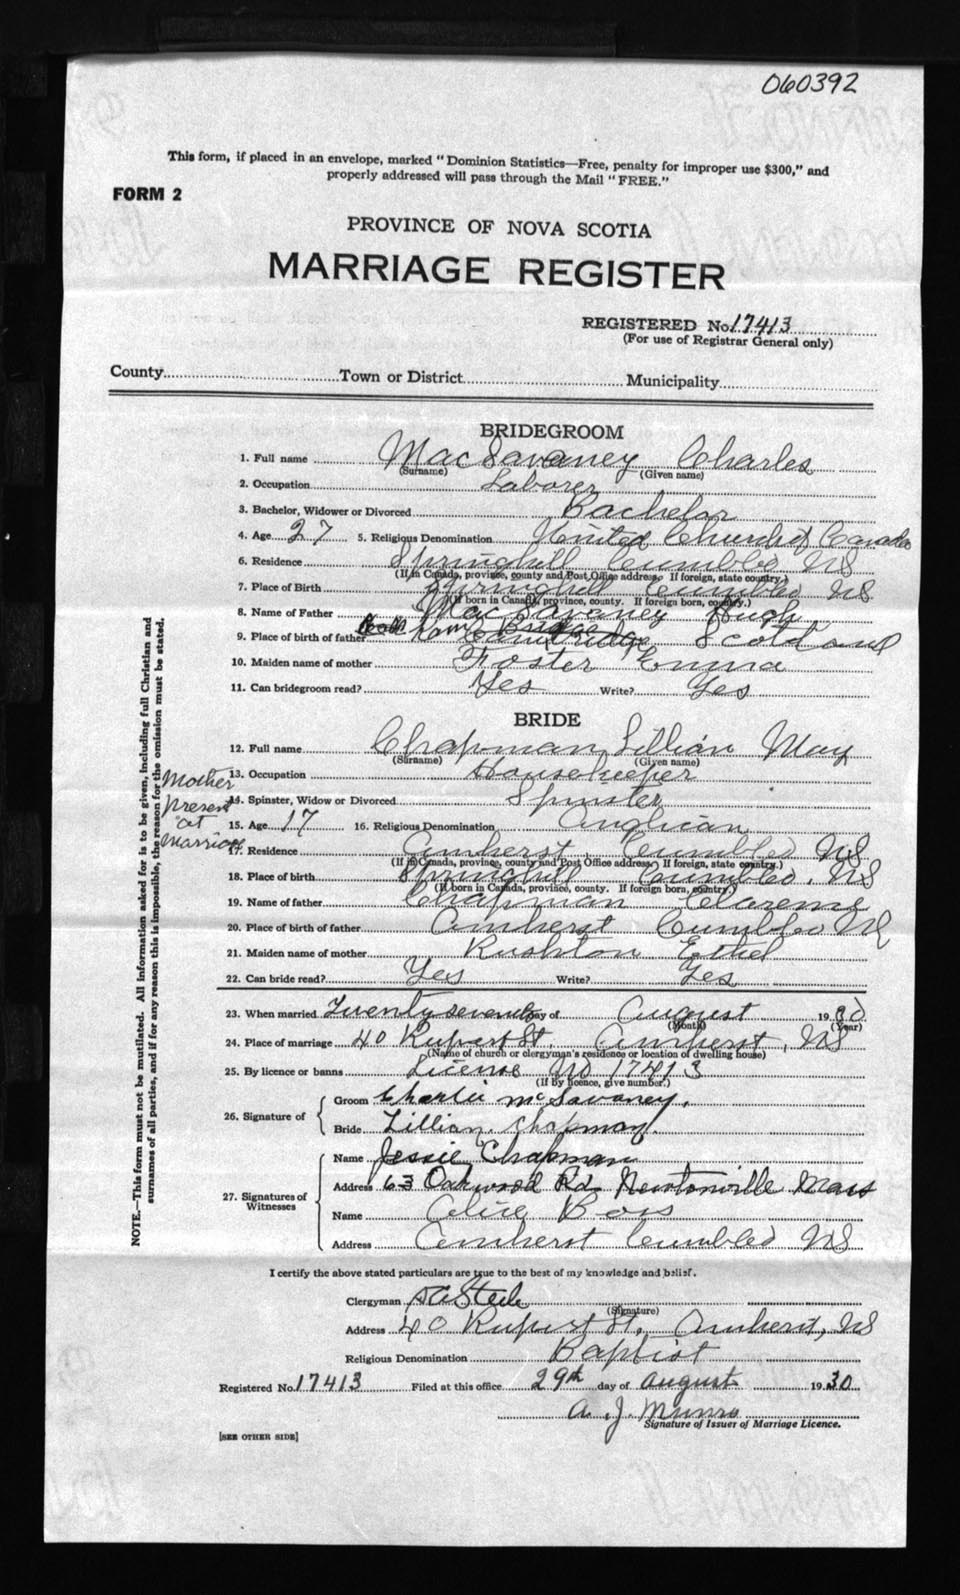 060392
This form, if placed in an envelope, marked "Dominion Statistics—Free, penalty for improper use $300," and
properly addressed will pass through the Mail "FREE."
FORM 2
PROVINCE OF NOVA SCOTIA
MARRIAGE REGISTER
REGISTERED No. 17413
(For use of Registrar General only)
County Town or District Municipality
BRIDEGROOM
1. Full name MacSavaney Charles
(Surname) (Given name)
2. Occupation Laborer
3. Bachelor, Widower or Divorced Bachelor
4. Age 27 5. Religious Denomination United Church of Canada
6. Residence Springhill Cumbld NS
(If in Canada, province, county and Post Office address. If foreign, state country.)
7. Place of Birth Springhill Cumbld NS
(If born in Canada, province, county. If foreign born, country.)
8. Name of Father MacSavaney Hugh
9. Place of birth of father Scotland
10. Maiden name of mother Foster Emma
11. Can bridegroom read? Yes Write? Yes
BRIDE
12. Full name Chapman Lillian May
(Surname) (Given name)
13. Occupation Housekeeper
14. Spinster, Widow or Divorced Spinster
15. Age 17 16. Religious Denomination Anglican
17. Residence Amherst, Cumbld NS
(If in Canada, province, county and Post Office address. If foreign, state country.)
18. Place of birth Springhill Cumbld. NS
(If born in Canada, province, county. If foreign born, country.)
19. Name of father Chapman Clarence
20. Place of birth of father Amherst Cumbld NS
21. Maiden name of mother Rushton Ethel
22. Can bride read? Yes Write? Yes
Mother
Present
at
Marriage
NOTE.—This form must not be mutilated. All information asked for is to be given, including full Christian and
surnames of all parties, and if for any reason this is impossible, the reason for the omission must be stated.
23. When married Twenty seventh day of August 1930
(Month) (Year)
24. Place of marriage 40 Rupert St. Amherst, NS
(Name of church or clergyman's residence or location of dwelling house)
25. By licence or banns License No 17413
(If by licence, give number.)
26. Signature of
Groom Charlie McSavaney.
Bride Lillian Chapman.
27. Signatures of
Witnesses
Name Jessie Chapman
Address 63 Oakwood Rd. Newtonville Mass
Name Alice Boss
Address Amherst Cumbld NS
I certify the above stated particulars are true to the best of my knowledge and belief.
Clergyman Steele
(Signature)
Address 40 Rupert St. Amherst, NS
Religious Denomination Baptist
Registered No. 17413 Filed at this office 29th day of August 1930
A. J. Munro
Signature of Issuer of Marriage Licence.
[SEE OTHER SIDE]